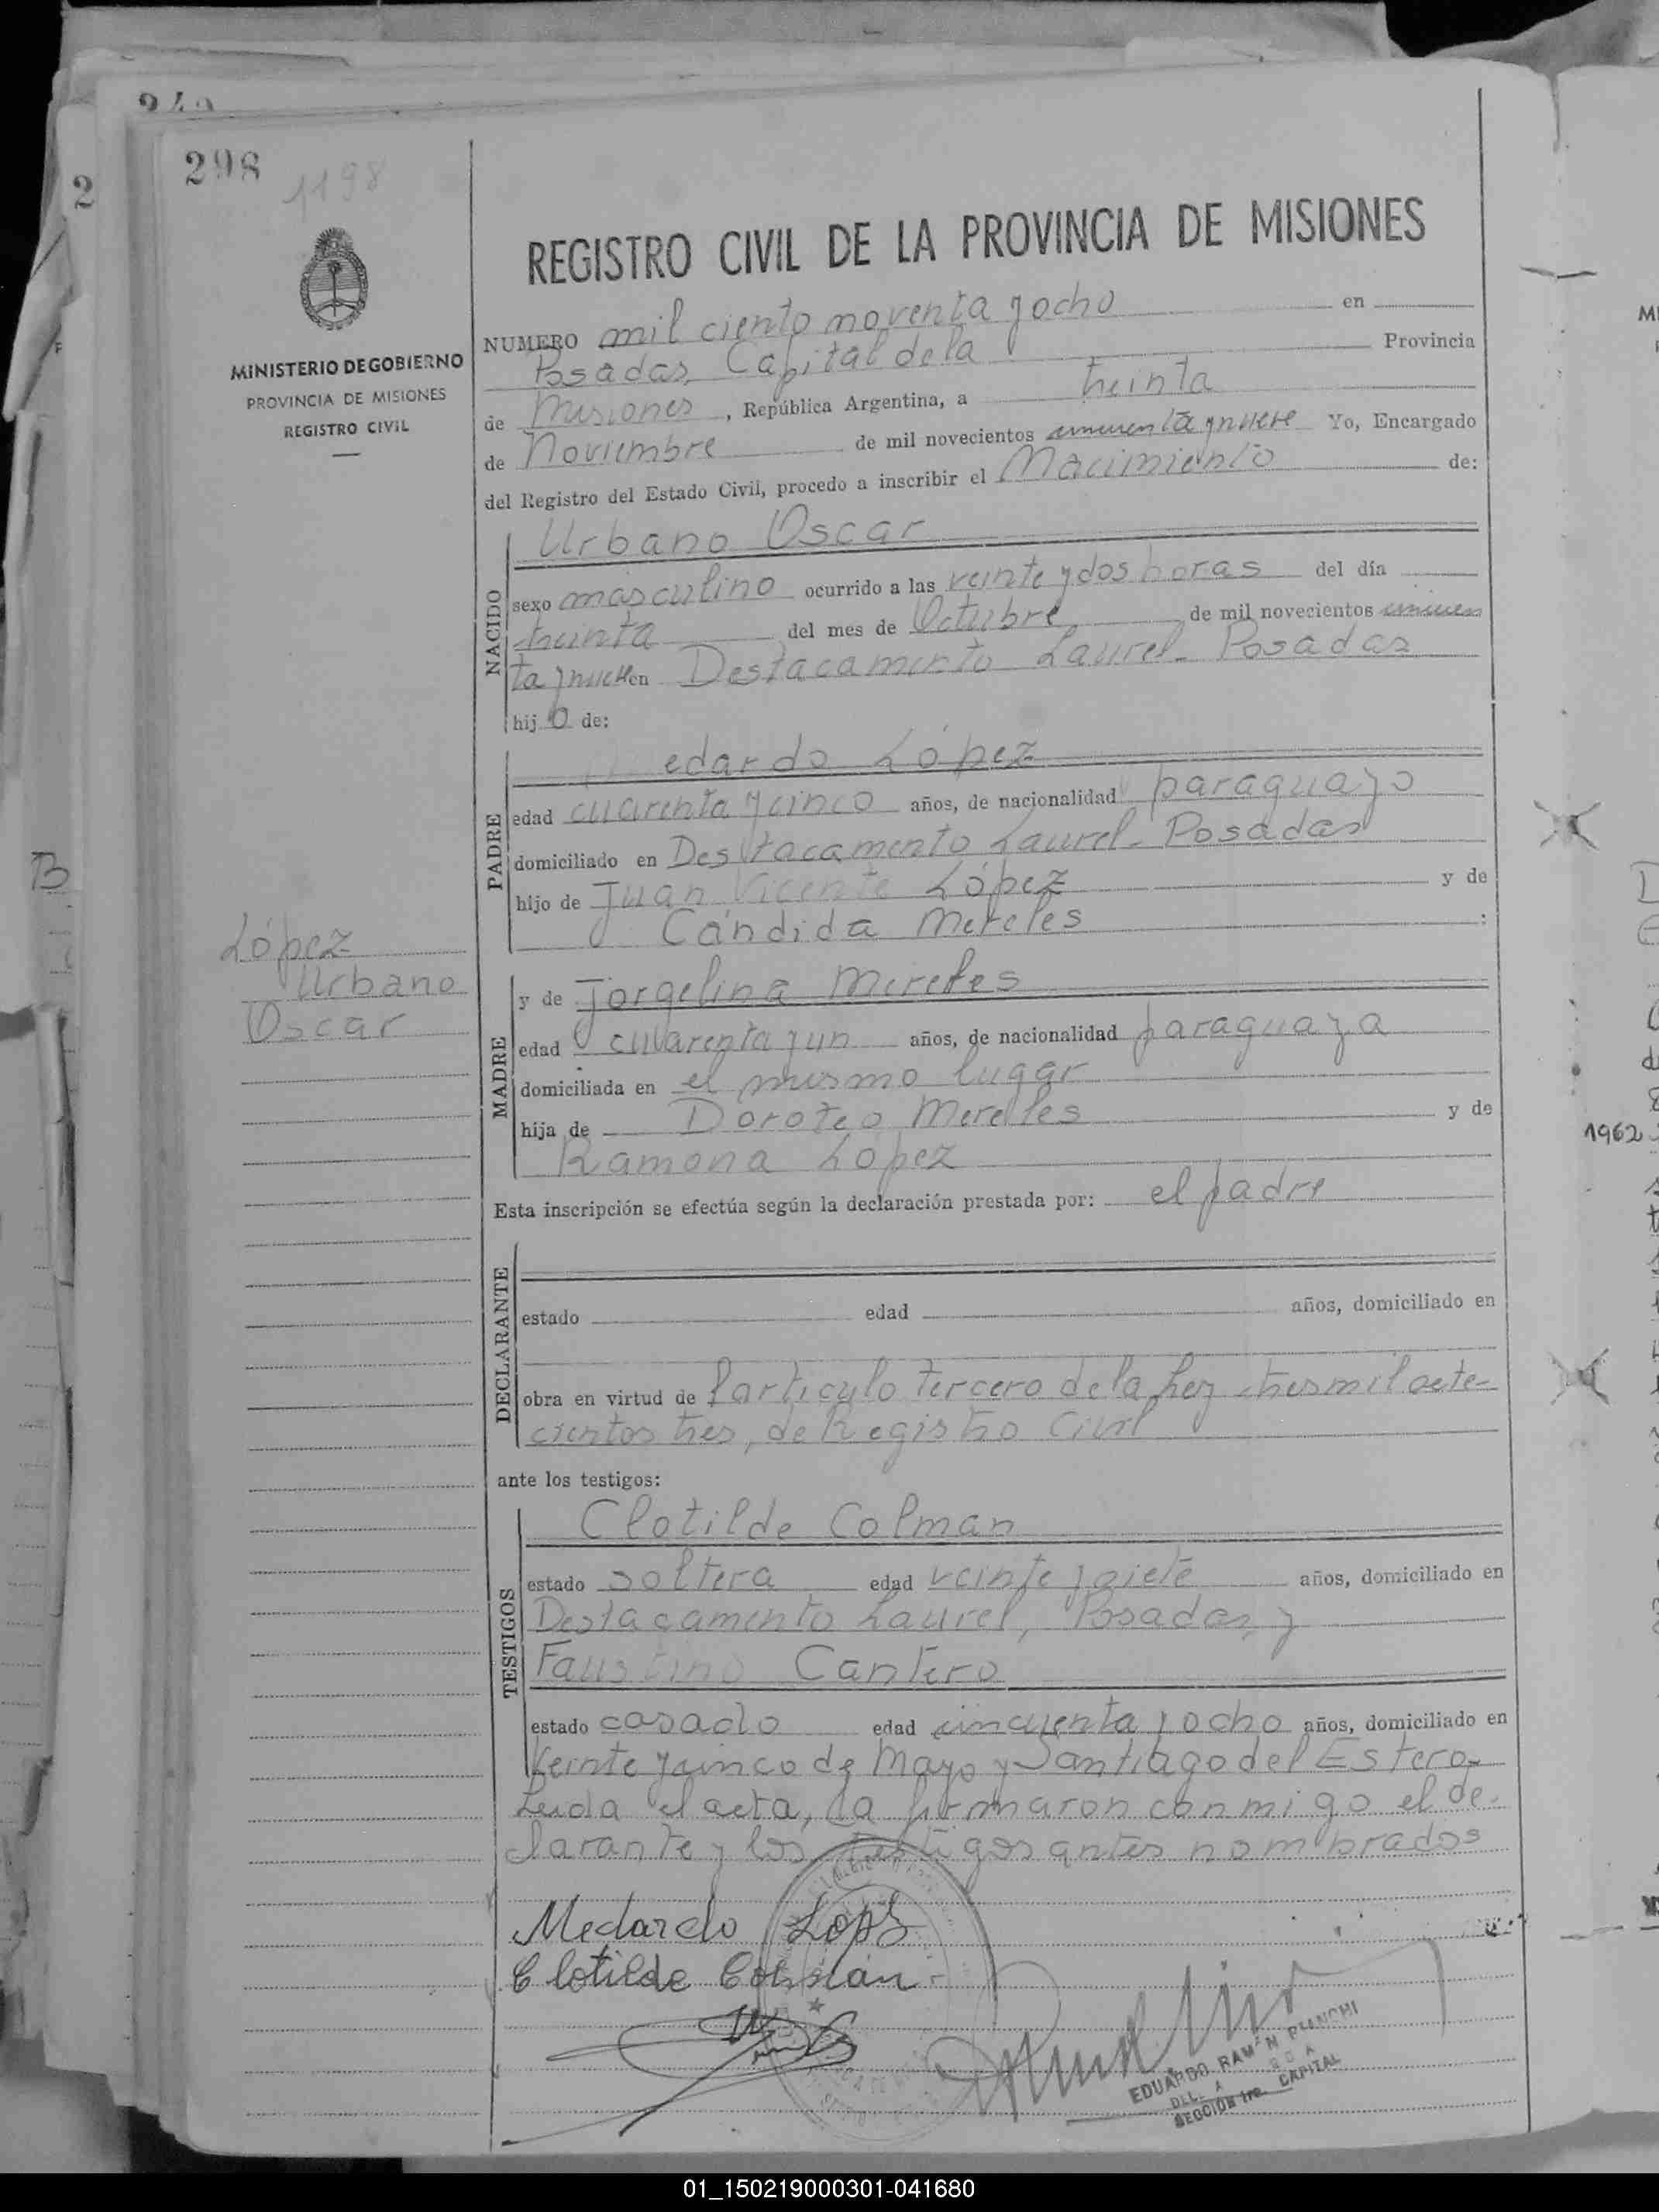 298
1198
2
MINISTERIO DE GOBIERNO
PROVINCIA DE MISIONES
REGISTRO CIVIL
REGISTRO CIVIL DE LA PROVINCIA DE MISIONES
NUMERO mil ciento noventa y ocho en
Posadas, Capital de la Provincia
de Misiones, República Argentina, a treinta
de Noviembre de mil novecientos cincuenta y nueve Yo, Encargado
del Registro del Estado Civil, procedo a inscribir el Nacimiento de:
NACIDO
Urbano Oscar
sexo masculino ocurrido a las veinte y dos horas del día
treinta del mes de Octubre de mil novecientos cincuen
ta y nueve en Destacamento Laurel - Posadas
hijo de:
PADRE
edardo López
edad cuarenta y cinco años, de nacionalidad paraguayo
domiciliado en Destacamento Laurel - Posadas
hijo de Juan Vicente López y de
Cándida Mereles:
López
Urbano
Oscar
MADRE
y de Jorgelina Mereles
edad cuarenta y un años, de nacionalidad paraguaya
domiciliada en el mismo lugar
hija de Doroteo Mereles y de
Ramona López
Esta inscripción se efectúa según la declaración prestada por: el padre
DECLARANTE
estado edad años, domiciliado en
obra en virtud de l'artículo tercero de la Ley tres mil sete-
cientos tres, de Registro Civil
ante los testigos:
TESTIGOS
Clotilde Colman
estado soltera edad veinte y siete años, domiciliado en
Destacamento Laurel, Posadas, y
Faustino Cantero
estado casado edad cincuenta y ocho años, domiciliado en
Veinte y cinco de Mayo y Santiago del Estero.
Leida el acta, la firmaron conmigo el de-
clarante y los testigos antes nombrados
Medardo Lops
Clotilde Colmán
EDUARDO RAMON BIANCHI
SECCIÓN 1ra. CAPITAL
1962
01_150219000301-041680